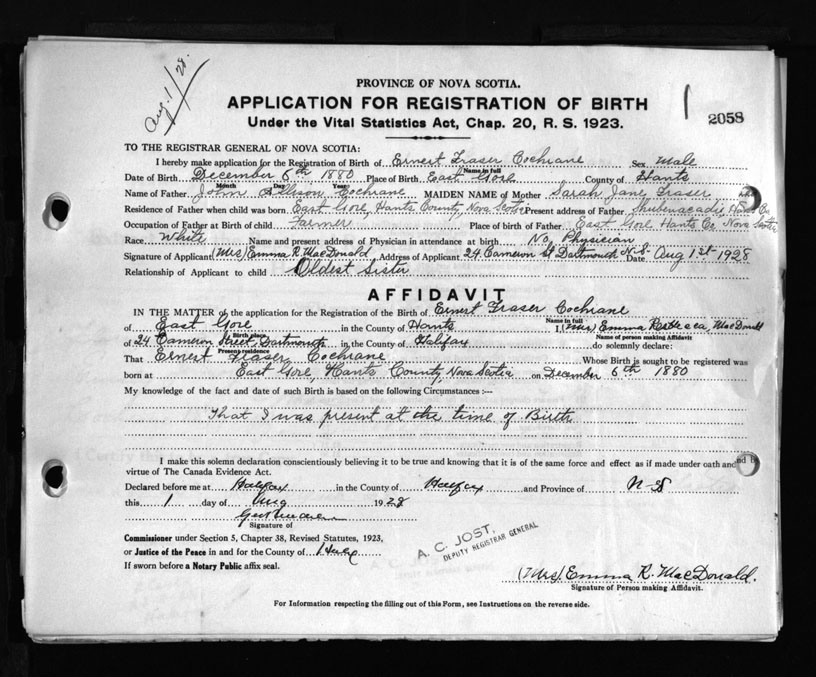 Aug. 1/28.
PROVINCE OF NOVA SCOTIA.
APPLICATION FOR REGISTRATION OF BIRTH
Under the Vital Statistics Act, Chap. 20, R. S. 1923.
2058
TO THE REGISTRAR GENERAL OF NOVA SCOTIA:
I hereby make application for the Registration of Birth of Ernest Fraser Cochrane Sex Male
Name in full
Date of Birth December 6th 1880 Place of Birth East Gore County of Hants
Month Day Year
Name of Father John Allison Cochrane MAIDEN NAME of Mother Sarah Jane Fraser
Residence of Father when child was born East Gore, Hants County, Nova Scotia Present address of Father Shubenacadie, Hants Co. Nova Scotia
Occupation of Father at Birth of child Farmer Place of birth of Father East Gore Hants Co.
Race White Name and present address of Physician in attendance at birth No Physician
Signature of Applicant (Mrs) Emma R. MacDonald Address of Applicant 24 Cameron St Dartmouth N.S. Date Aug 1st 1928
Relationship of Applicant to child Oldest Sister
AFFIDAVIT
IN THE MATTER of the application for the Registration of the Birth of Ernest Fraser Cochrane
Name in full
of East Gore in the County of Hants I, (Mrs) Emma Rebecca MacDonald
Birth place Name of person making Affidavit
of 24 Cameron Street, Dartmouth in the County of Halifax do solemnly declare:
Present residence
That Ernest Fraser Cochrane Whose Birth is sought to be registered was
born at East Gore, Hants County, Nova Scotia on December 6th 1880
My knowledge of the fact and date of such Birth is based on the following Circumstances :—
That I was present at the time of Birth
I make this solemn declaration conscientiously believing it to be true and knowing that it is of the same force and effect as if made under oath and
virtue of The Canada Evidence Act.
Declared before me at Halifax in the County of Halifax and Province of N-S
this 1 day of Aug 1928
Signature of
Commissioner under Section 5, Chapter 38, Revised Statutes, 1923,
or Justice of the Peace in and for the County of
If sworn before a Notary Public affix seal.
A. C. JOST,
DEPUTY REGISTRAR GENERAL
(Mrs) Emma R. MacDonald.
Signature of Person making Affidavit.
For Information respecting the filling out of this Form, see Instructions on the reverse side.